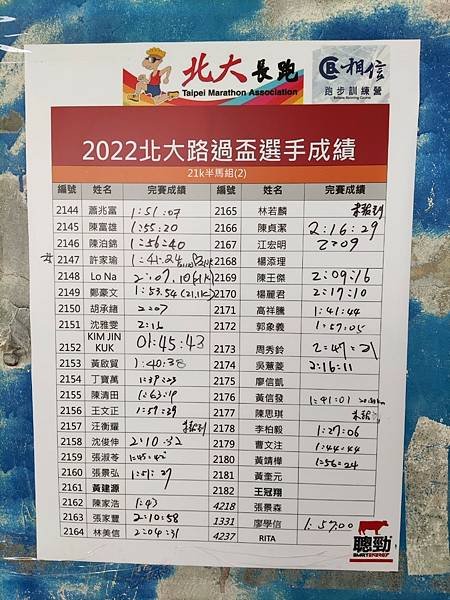 北大長跑
Taipei Marathon Association
相信
跑步訓練營
2022北大路過盃選手成績
21k半馬組(2)
編號 姓名 完賽成績 編號 姓名 完賽成績
2144 蕭兆富 1:51:07 2165 林若麟 未報到
2145 陳富雄 1:55:20 2166 陳貞潔 2:16:29
2146 陳泊錦 1:56:40 2167 江宏明 2:09
2147 許家瑜 1:41:24 2168 楊添理
2148 Lo Na 2:07.10 2169 陳王傑 2:09:16
2149 鄭豪文 1:53.54 (21.1K) 2170 楊麗君 2:17:10
2150 胡承緒 2:07 2171 高祥騰 1:41:44
2151 沈雅雯 2:16 2172 郭象義 1:57:05
2152 KIM JIN KUK 01:45:43 2173 周秀鈴 2:47:21
2153 黃啟賢 1:40:38 2174 吳蕙菱 2:16:11
2154 丁寶萬 1:39:03 2175 廖信凱
2155 陳清田 1:63:19 2176 黃信發 1:41:01
2156 王文正 1:59:39 2177 陳思琪 未報到
2157 汪衡耀 未報到 2178 李柏毅 1:27:06
2158 沈俊伸 2:10:32 2179 曹文注 1:44:44
2159 張淑苓 1:45:42 2180 黃靖樺 1:56:24
2160 張景弘 1:51:27 2181 黃奎元
2161 黃建源 2182 王冠翔
2162 陳家浩 1:43 4218 張景森
2163 張家豐 2:10:58 1331 廖學信 1:57:00
2164 林美信 2:04:31 4237 RITA
聰勁